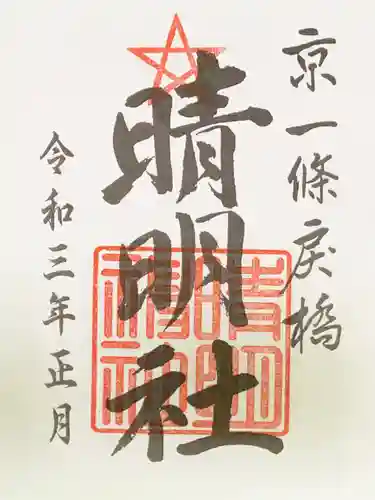 京一條戻橋
晴明社
晴明
神社
令和三年正月